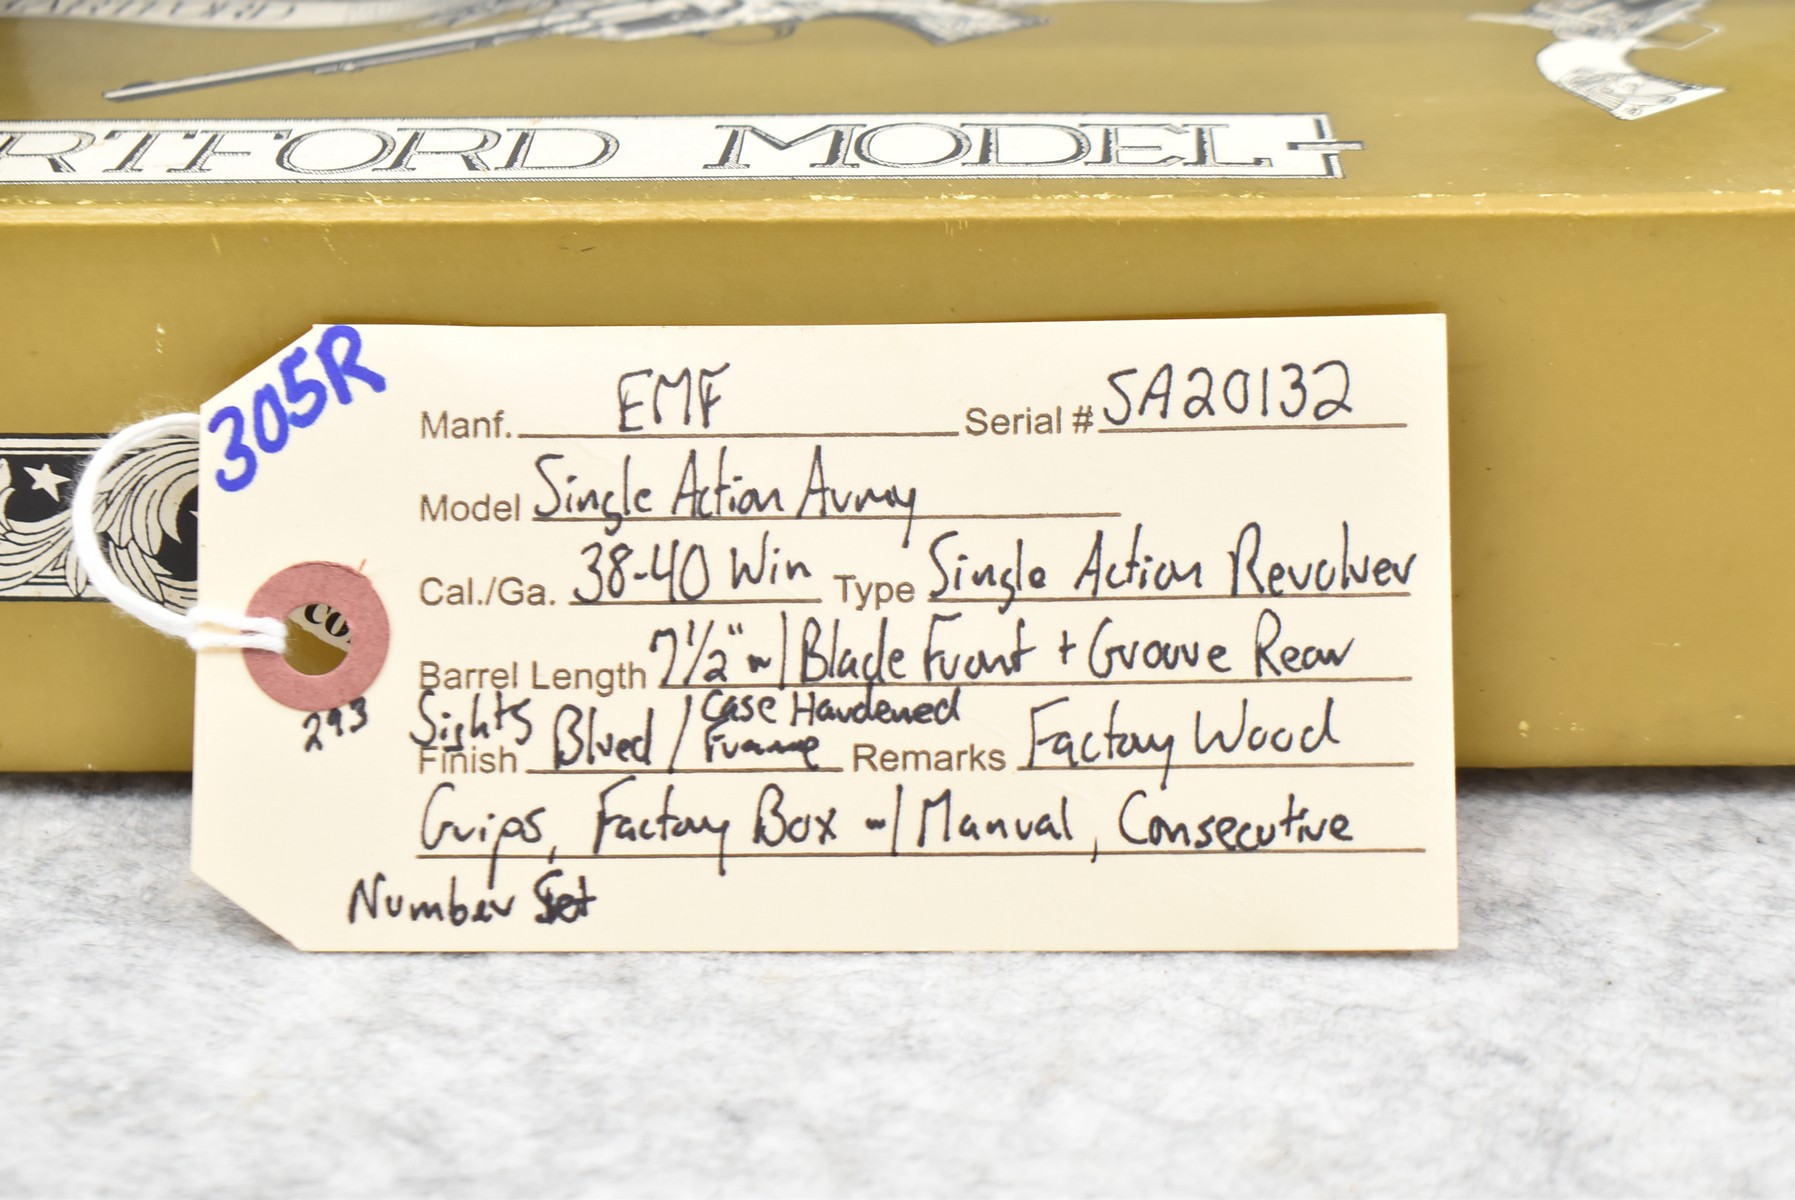 RTFORD MODEL
305R
Manf. EMF Serial # SA20132
Model Single Action Army
Cal./Ga. 38-40 Win Type Single Action Revolver
Barrel Length 7 1/2" w/ Blade Front + Groove Rear
Sights
Finish Blued / Case Hardened Frame Remarks Factory Wood
Grips, Factory Box w/ Manual, Consecutive
Number Set
293
CO